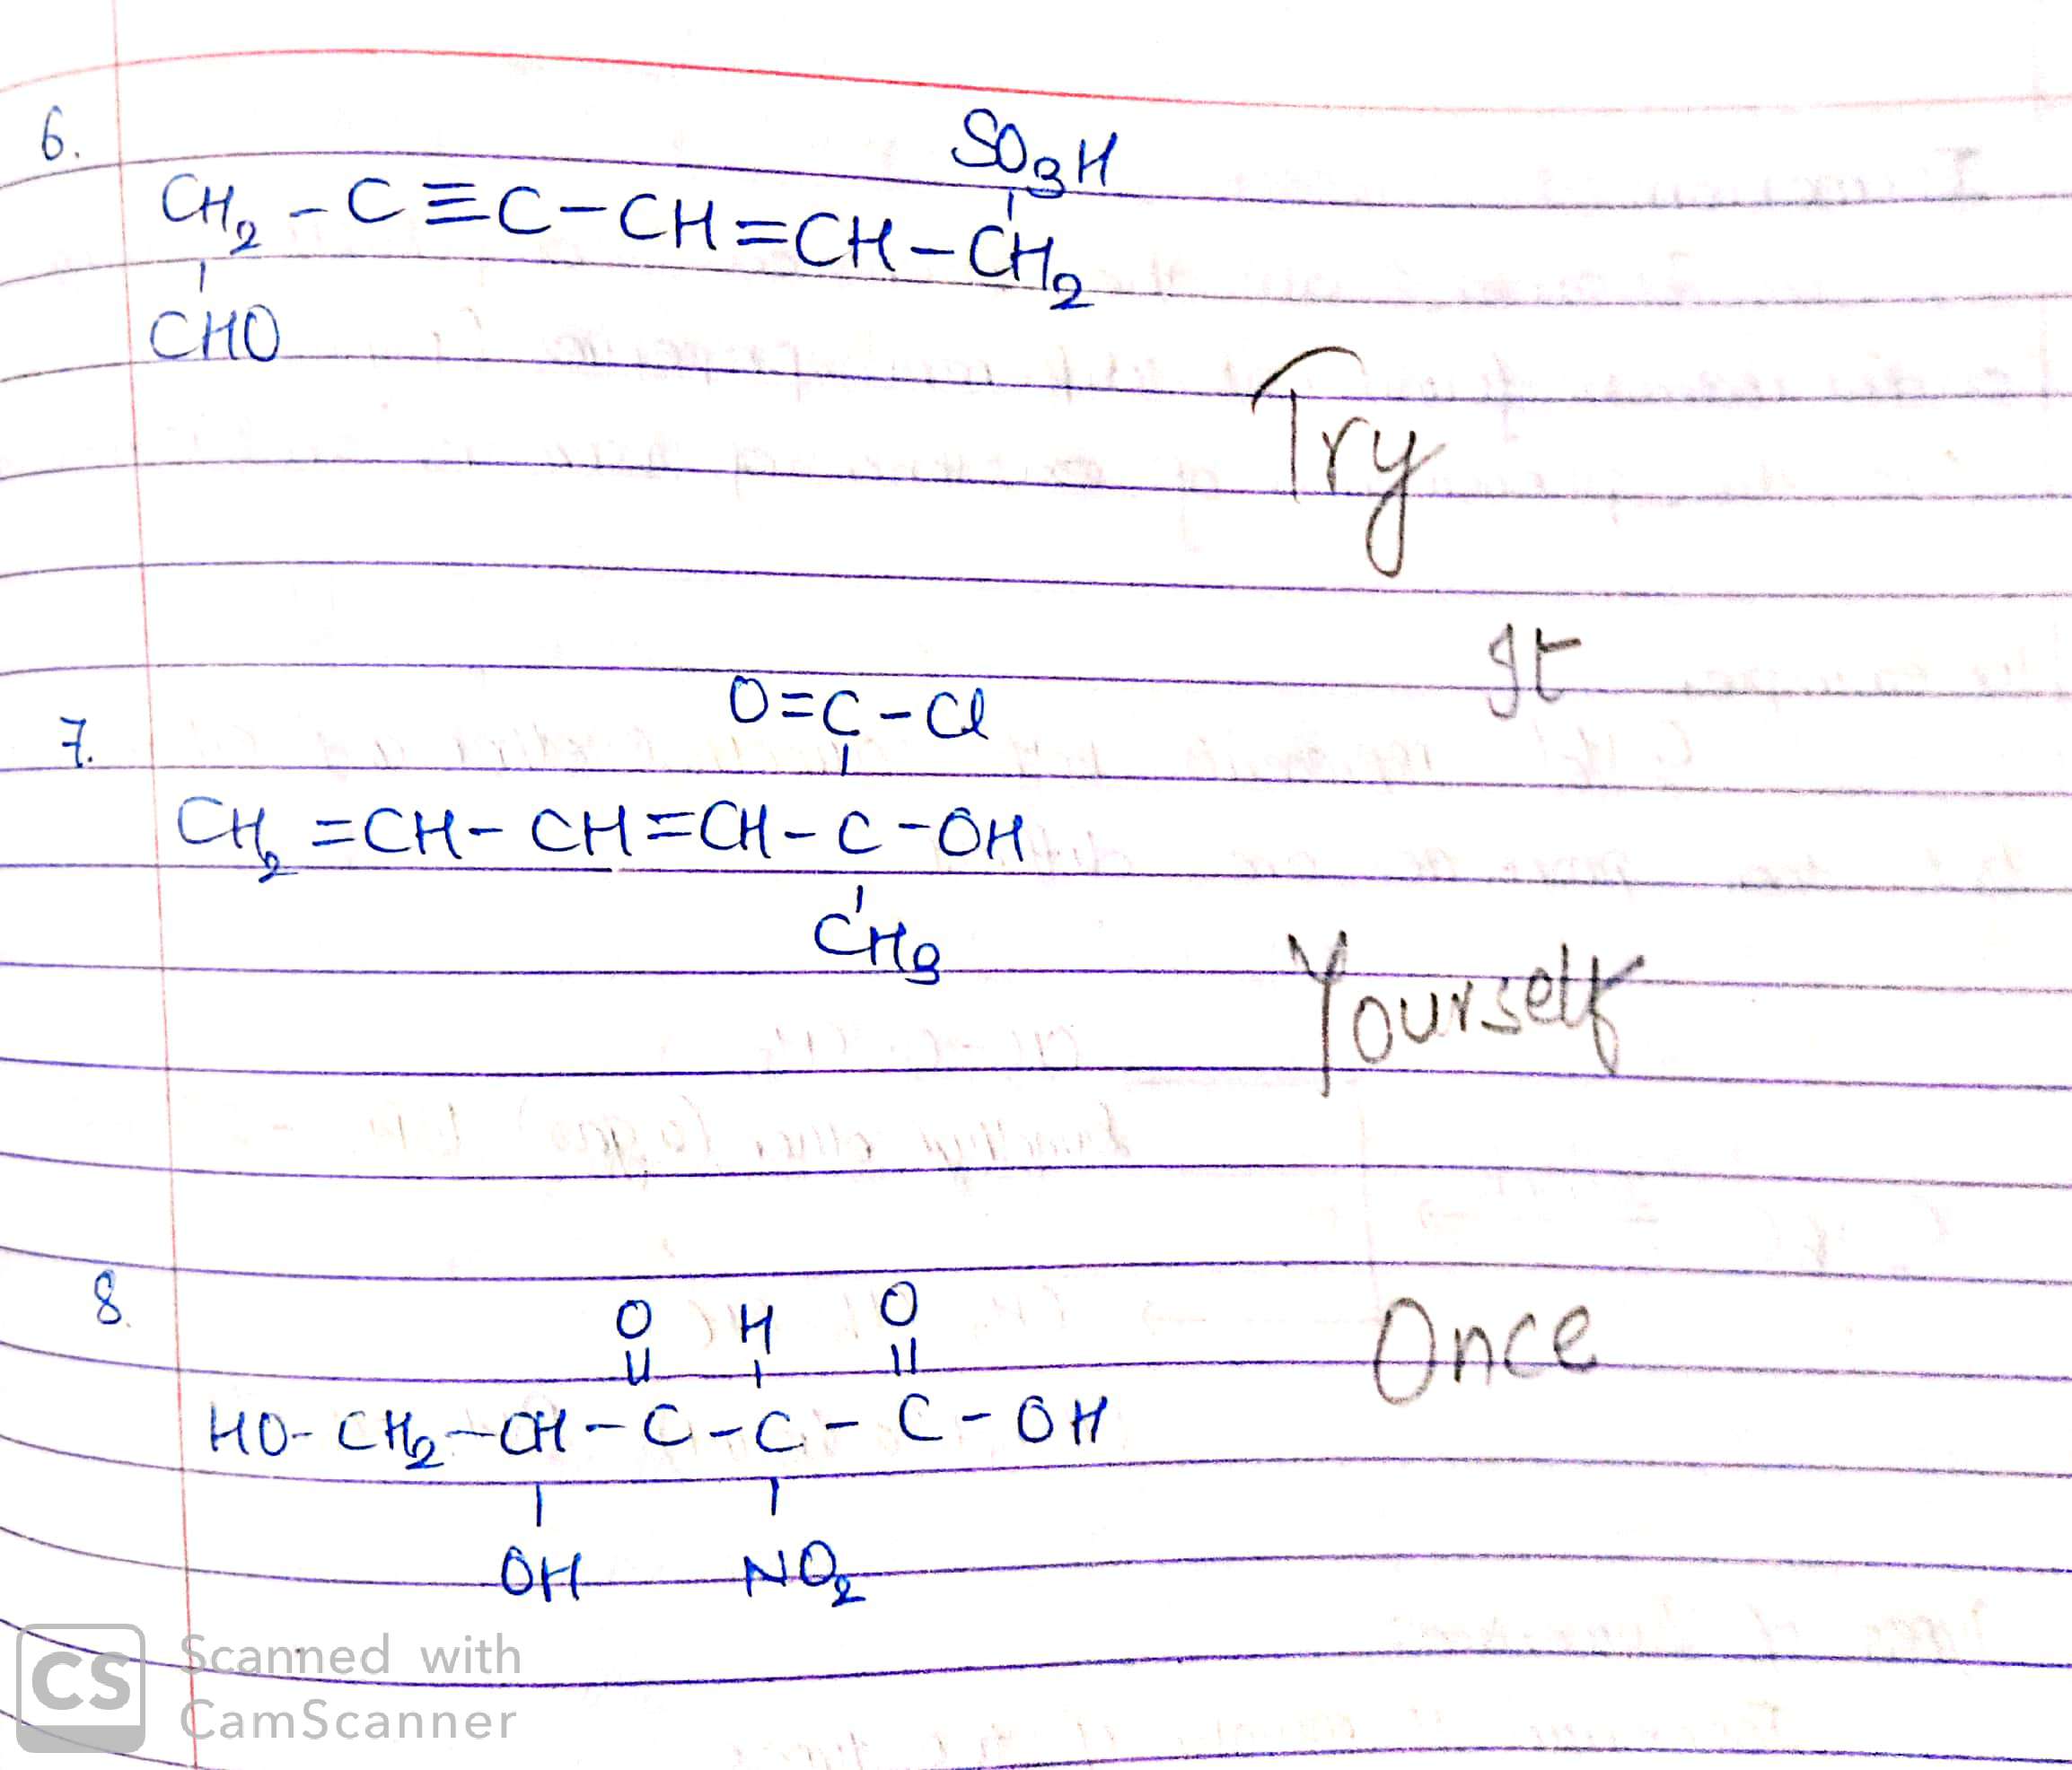 6.
SO₃H
CH₂ - C ≡ C - CH = CH - CH₂
CHO
Try
It
7.
O = C - Cl
CH₂ = CH - CH = CH - C - OH
CH₃
Yourself
8.
O H O
HO - CH₂ - CH - C - C - C - OH
OH NO₂
Once
CS Scanned with
CamScanner